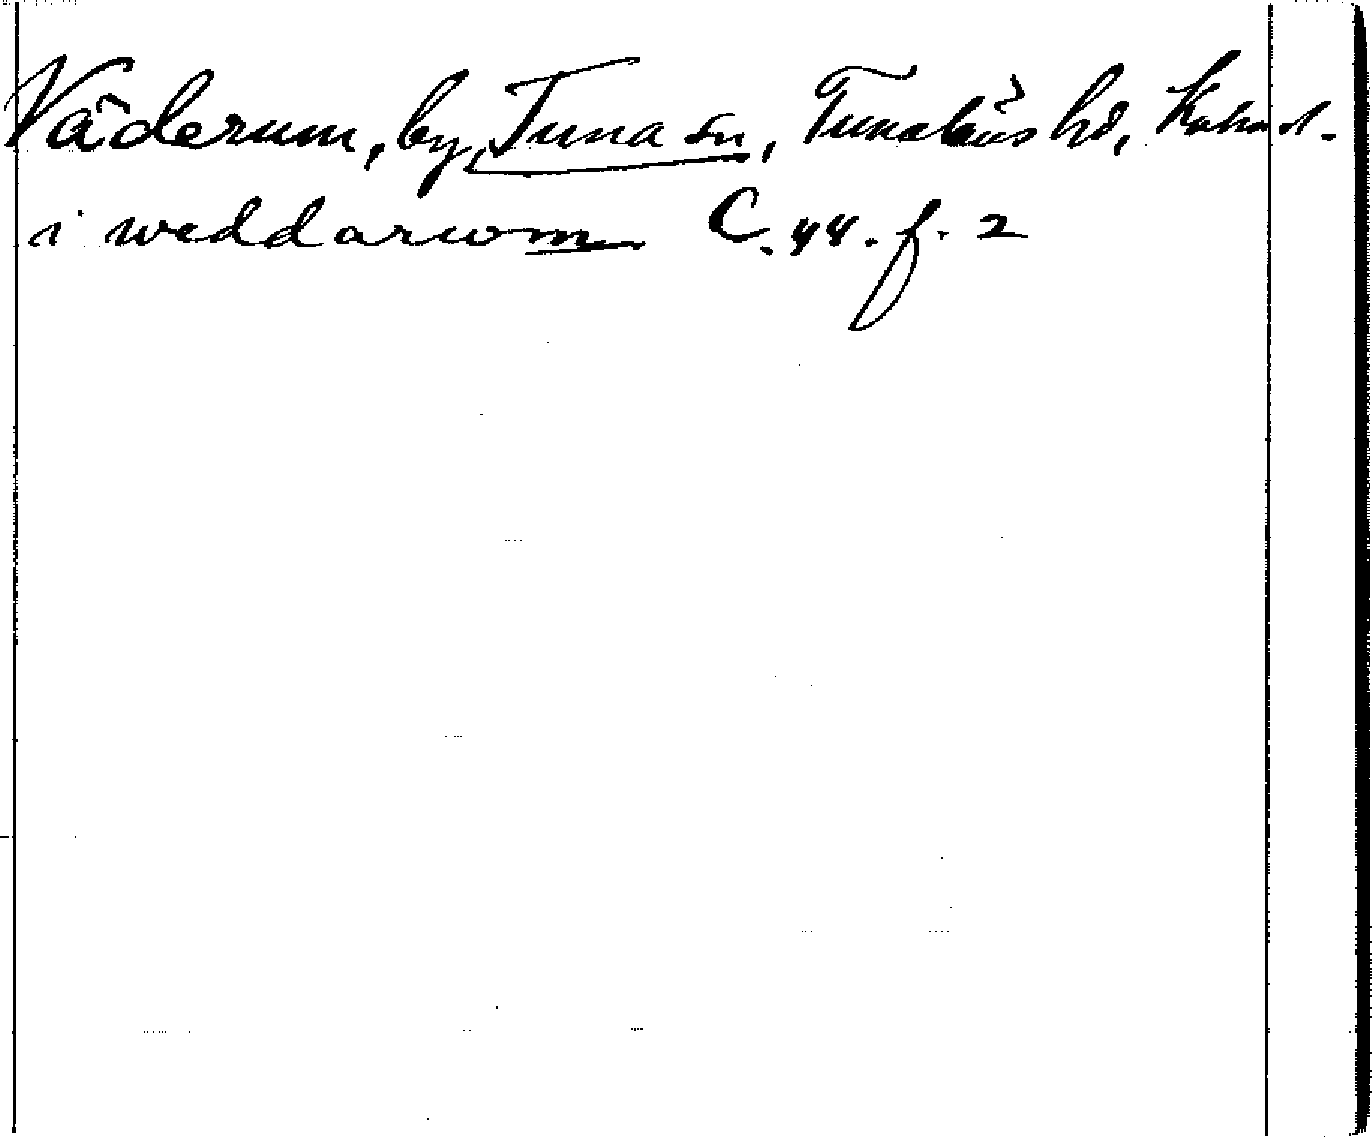 Väderum, by, Tuna sn, Tunaläns hd, Kalm. l.
i weddarwm C. 44. f. 2